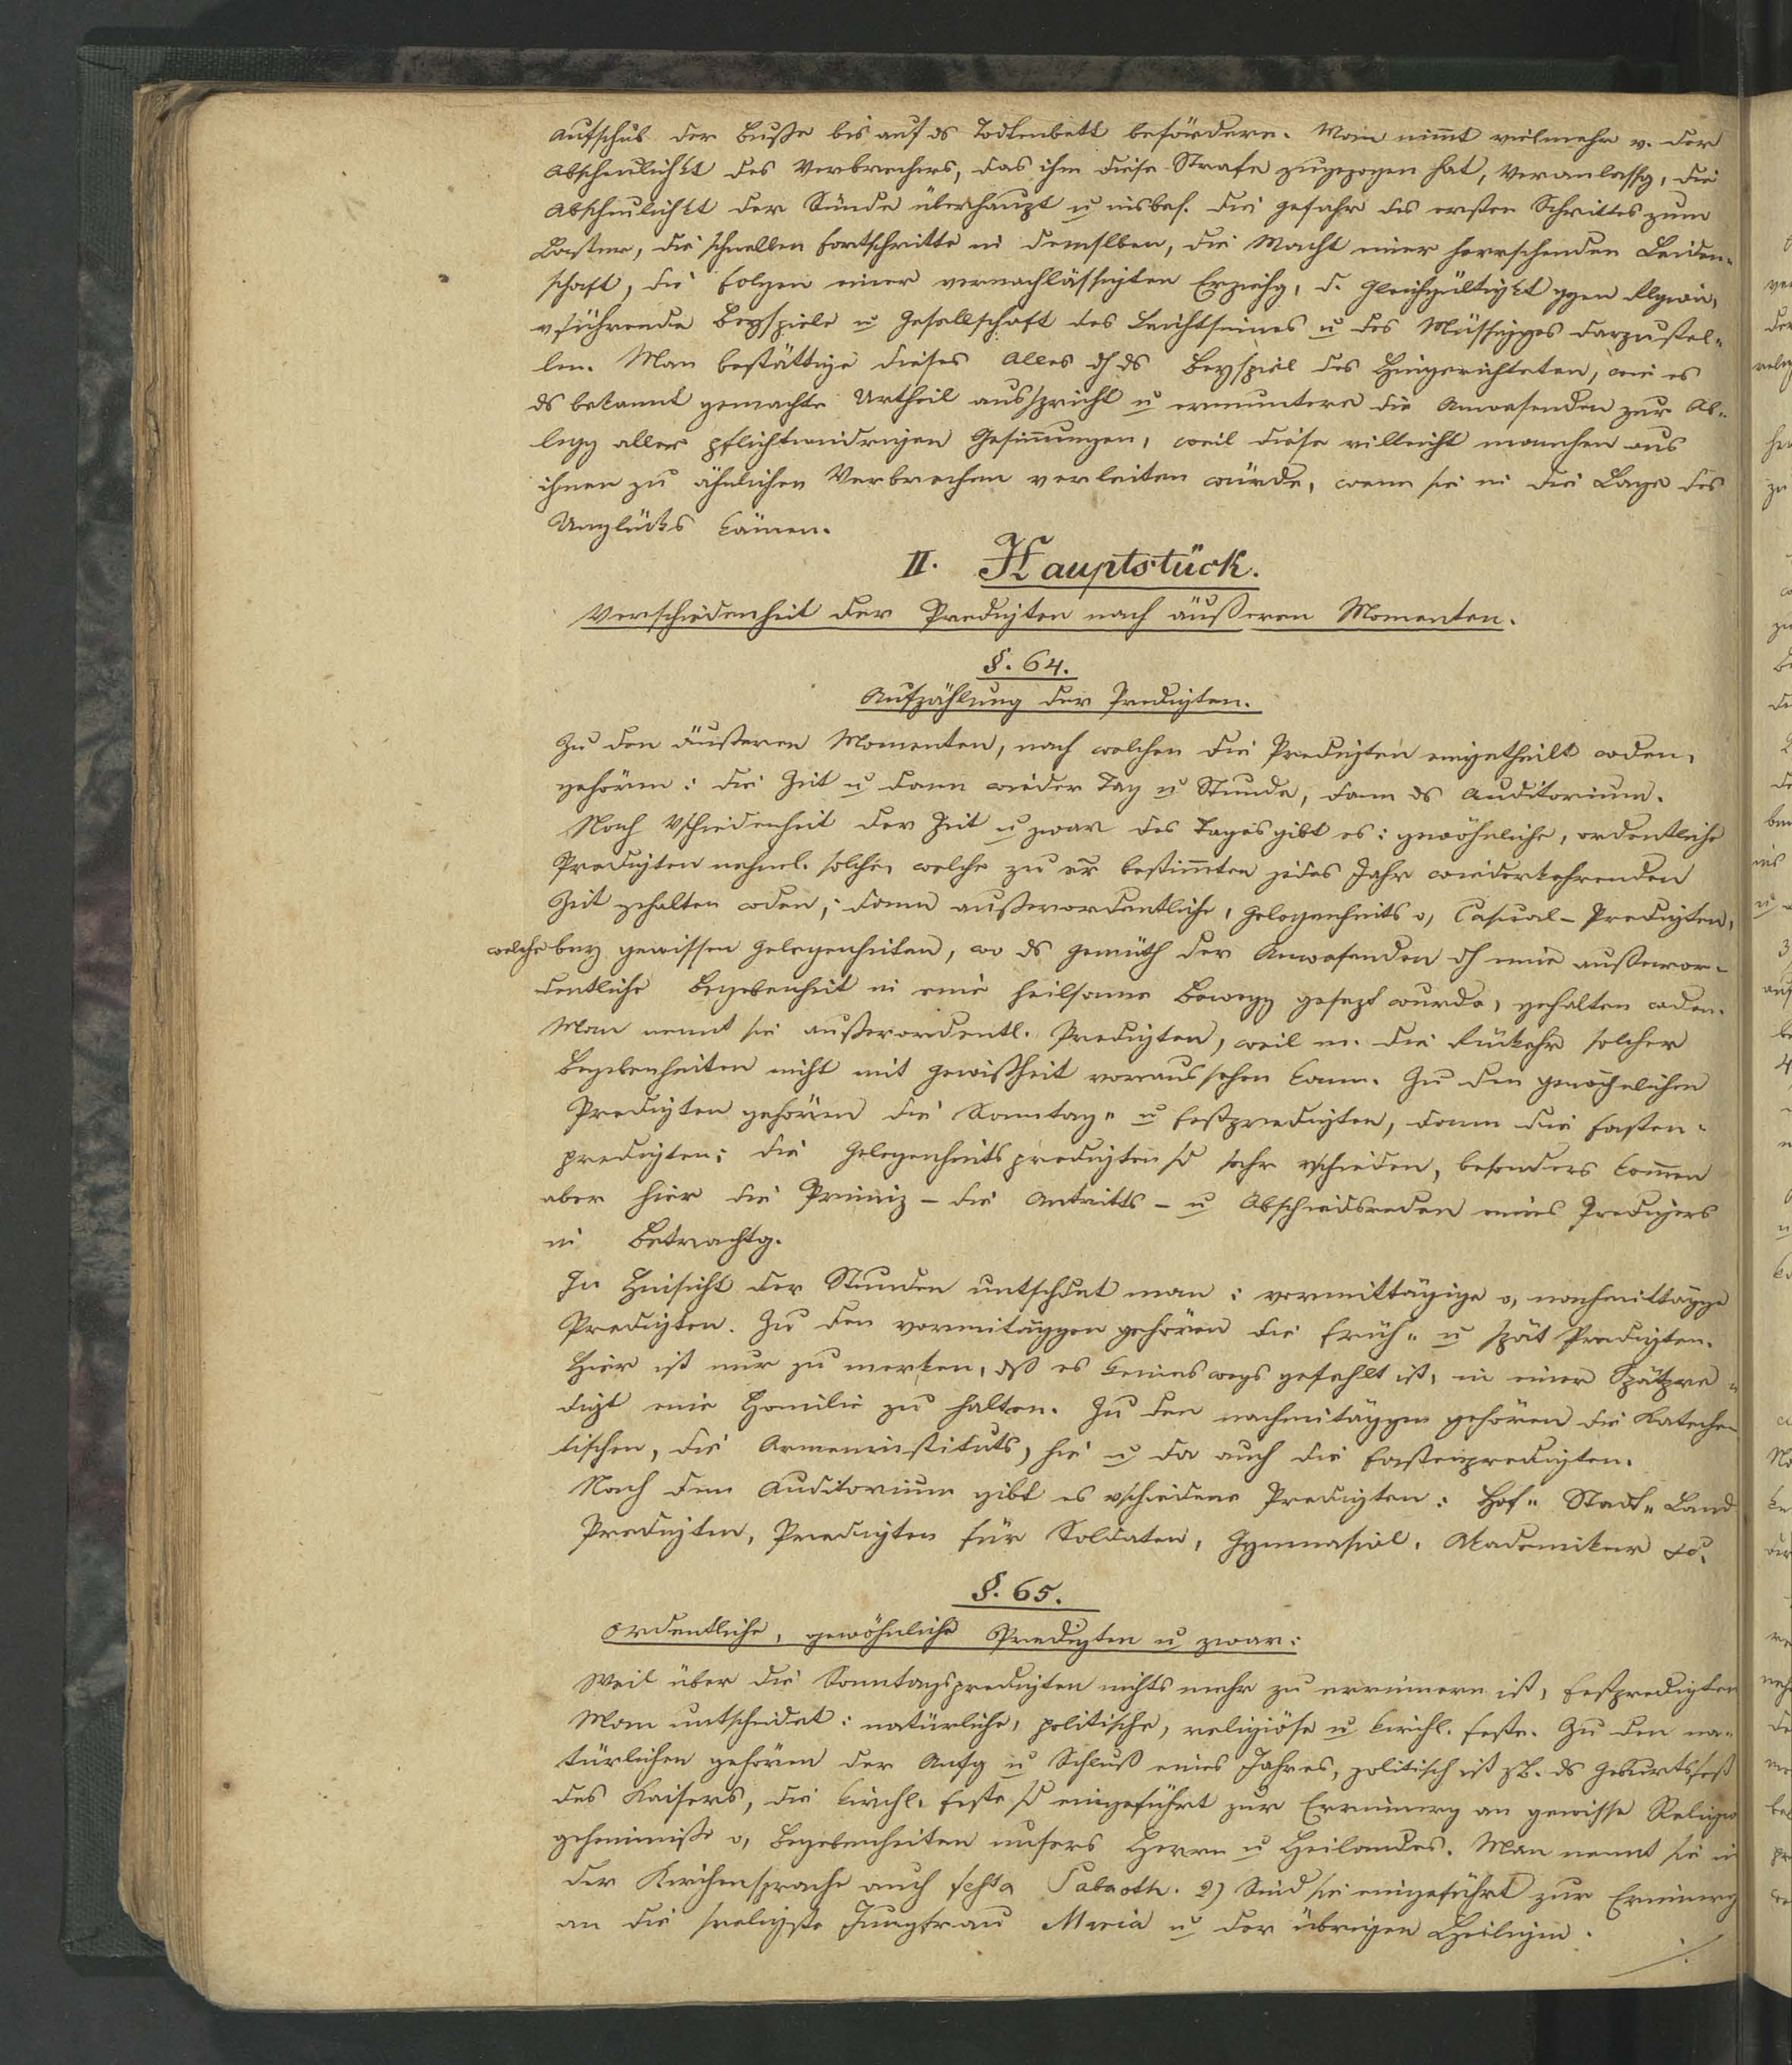 Aufschub der Buße bis auf ds Todtenbett befördern. Man nimt vielmehr v. der
Abscheulichkt des Verbrechers, das ihm diese Strafe zugezogen hat, Veranlassg, die
Abscheulichkt der Sünde überhaupt u insbes. die Gefahr des ersten Schrittes zum
Laster, die schnellen Fortschritte in demselben, die Macht einer herrschenden Leiden-
schaft, die Folgen einer vernachlässigten Erziehg, d. Gleichgültigkt ggen
vführende Beyspiele u Gesellschaft des Leichtsinnes u des Müssigges darzustel-
len. Man bestättige dieses Alles dh ds Beyspiel des Hingerichteten, wie es
ds bekannt gemachte Urtheil ausspricht u ermuntere die Anwesenden zur Ab-
legg aller pflichtwidrigen Gesinnungen, weil diese villeicht manchen aus
ihnen zu ähnlichen Verbrechen verleiten würde, wenn sie in die Lage des
Unglücks kämen.
II. Hauptstück.
Verschiedenheit der Predigten nach äußeren Momenten.
§. 64.
Aufzählung der Predigten.
Zu den äußeren Momenten, nach welchen die Predigten eingetheilt wden,
gehören: die Zeit u dann wieder Tag u Stunde, dann ds Auditorium.
Nach Vschiedenheit der Zeit u zwar des Tages gibt es: gewöhnliche, ordentliche
Predigten nehml. solche, welche zu er bestimten jedes Jahr wiederkehrenden
Zeit gehalten wden; dann außerordentliche, Gelegenheits o, Casual-Predigten,
welche bey gewissen Gelegenheiten, wo ds Gemüth der Anwesenden dh eine außeror-
dentliche Begebenheit in eine heilsame Bewegg gesezt wurde, gehalten wden.
Man nennt sie außerordentl. Predigten, weil m. die Rükehr solcher
Begebenheiten nicht mit Gewißheit voraussehen kann. Zu den gewöhnlichen
Predigten gehören die Sonntag- u Festpredigten, dann die Fasten-
predigten; die Gelegenheitspredigten sd sehr vschieden, besonders komen
aber hier die Primiz- die Antritts- u Abschiedsreden eines Predigers
in Betrachtg.
In Hinsicht der Stunden untschdet man: vormittägige o, nachmittägge
Predigten. Zu den vormitäggen gehören die Früh- u spät Predigten.
Hier ist nur zu merken, dß es keineswegs gefehlt ist, in einer Spätpre-
digt eine Homilie zu halten. Zu den nachmitäggen gehören die Kateche
tischen, die Armeninstituts, hie u da auch die Fastenpredigten.
Nach dem Auditorium gibt es vschiedene Predigten: Hof- Stadt- Land
Predigten, Predigten für Soldaten, Gymnasial, Akademiker
§. 65.
Ordentliche, gewöhnliche Predigten u zwar:
Weil über die Sonntagspredigten nichts mehr zu errinnern ist, Festpredigten
Man untscheidet: natürliche, politische, religiöse u kirchl. Feste. Zu den na-
türlichen gehören der Anfg u Schluß eines Jahres, politisch ist zB. ds Geburtsfest
des Kaisers, die kirchl. Feste sd eingeführt zur Errinnerg an gewisse Religio
geheimniße o, Begebenheiten unsers Herrn u Heilandes. Man nennt sie in
der Kirchensprache auch festa Sabaoth. 2) Sind sie eingeführt zur Erinnerg
an die seeligste Jungfrau Maria u der übrigen Heiligen.